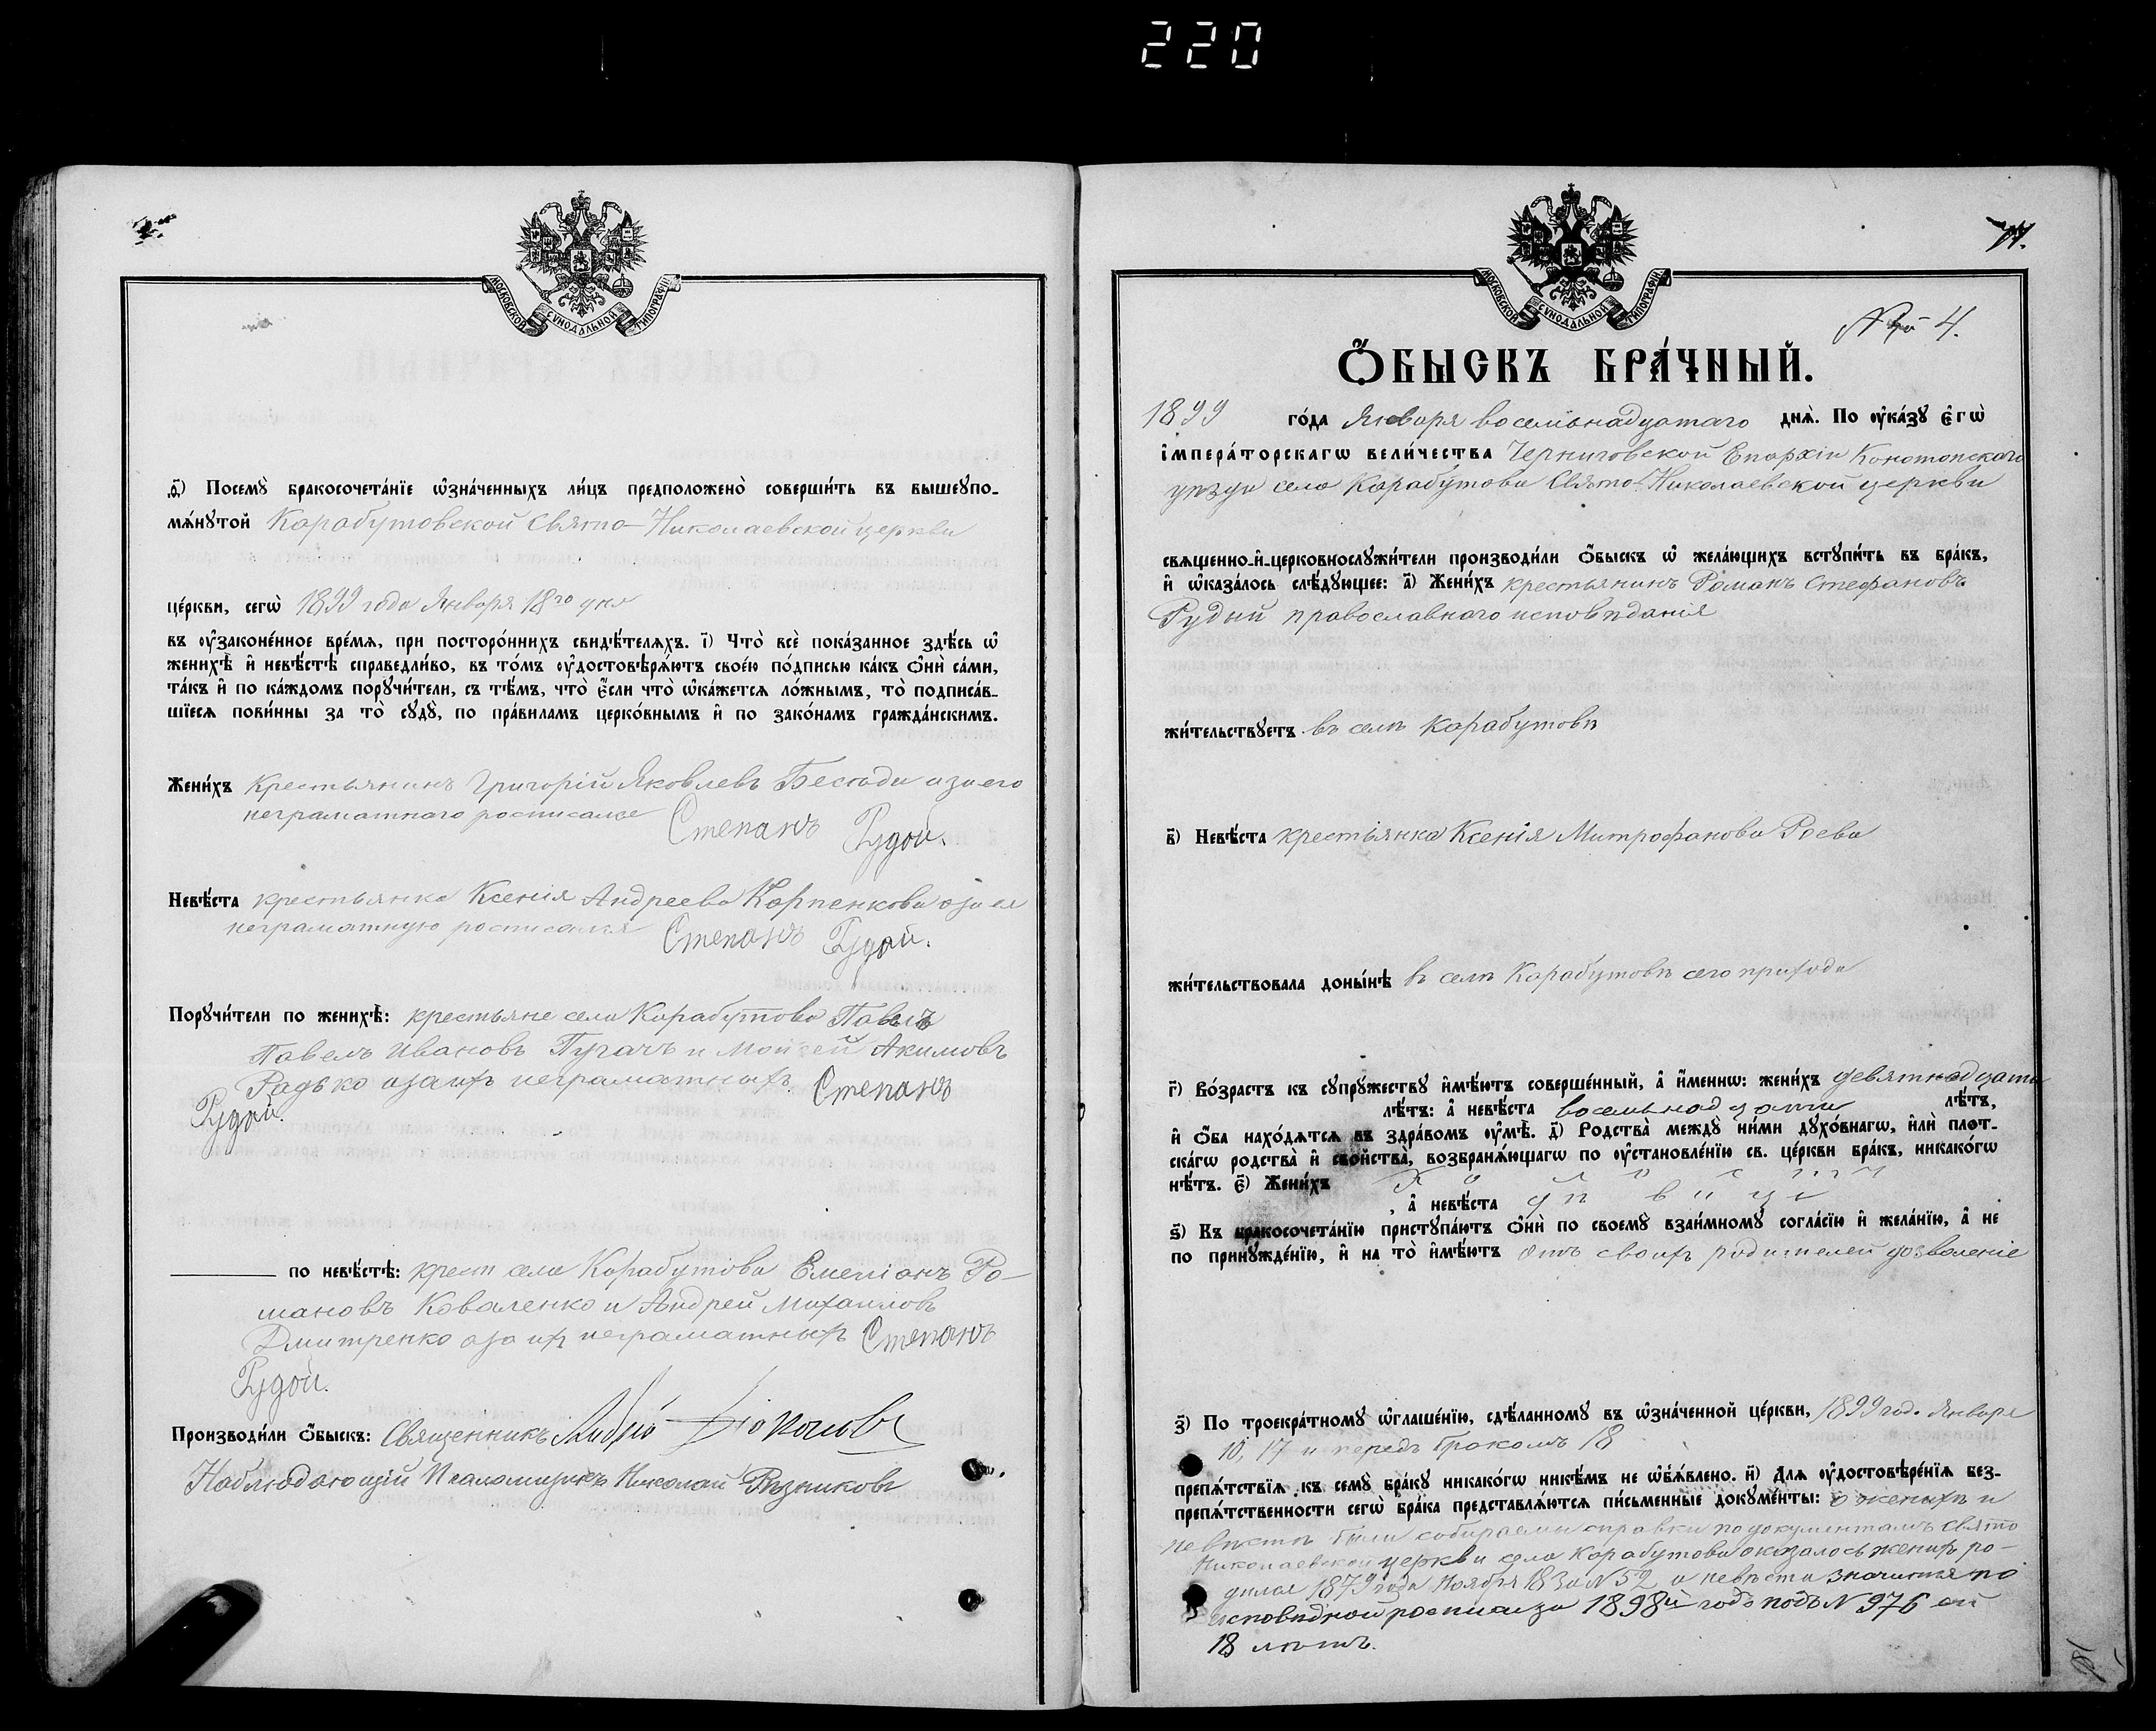 220
МОСКОВСКОЙ СѴНОДАЛЬНОЙ ТИПОГРАФІИ
д҃) Посемꙋ̀ бракосочета́нїе ѡ҆зна́ченныхъ ли́цъ предположено̀ соверши́ть въ вышеꙋпо-
мѧ́нꙋтой Карабутовской Свято-Николаевской церкви
це́ркви, сегѡ̀ 1899 года Января 18го дня
въ ᲂу҆законе́нное вре́мѧ, при посторо́ннихъ свидѣ́телѧхъ. і҃) Что̀ всѐ пока́занное здѣ́сь ѡ҆
женихѣ̀ и҆ невѣ́стѣ справедли́во, въ то́мъ ᲂу҆достовѣрѧ́ютъ свое́ю по́дписью ка́къ ѻ҆нѝ са́ми,
та́къ и҆ по ка́ждомъ порꙋчи́тели, съ тѣ́мъ, что̀ є҆́сли что̀ ѡ҆ка́жетсѧ ло́жнымъ, то̀ подписа́в-
шїесѧ пови́нны за то̀ сꙋдꙋ̀, по пра́виламъ церко́внымъ и҆ по зако́намъ гражда́нскимъ.
Жени́хъ Крестьянинъ Григорій Яковлевъ Беседа а за его
неграматнаго росписался Степанъ Рудой.
Невѣ́ста крестьянка Ксенія Андреева Карпенкова а за ея
неграматную росписался Степанъ Рудой.
Порꙋчи́тели по женихѣ̀: крестьяне села Карабутова Павелъ
Павелъ Ивановъ Пугачъ и Мойсей Акимовъ
Радько а за ихъ неграматныхъ Степанъ
Рудой.
по невѣ́стѣ: крест села Карабутова Емеліанъ Ро-
мановъ Коваленко и Андрей Михаиловъ
Дмитренко а за ихъ неграматныхъ Степанъ
Рудой.
Производи́ли ѻ҆́быскъ: Священникъ
Наблюдающій Псаломщикъ Николай Рѣзниковъ
МОСКОВСКОЙ СѴНОДАЛЬНОЙ ТИПОГРАФІИ
4.
Ѻ҆́БЫСКЪ БРА́ЧНЫЙ.
1899 го́да Января восемьнадцатаго днѧ̀. По ᲂу҆ка́зꙋ є҆гѡ̀
і҆мпера́торскагѡ вели́чества Черниговской Епархіи Конотопскаго
уѣзда села Карабутова Свято-Николаевской церкви
свѧщенно-и҆-церковнослꙋжи́тели производи́ли ѻ҆́быскъ ѡ҆ жела́ющихъ встꙋпи́ть въ бра́къ,
и҆ ѡ҆каза́лось слѣ́дꙋющее: а҃) Жени́хъ крестьянинъ Романъ Стефановъ
Рудый православнаго исповѣданія
жи́тельствꙋетъ въ селѣ Карабутовѣ
в҃) Невѣ́ста крестьянка Ксенія Митрофанова Роева
жи́тельствовала доны́нѣ въ селѣ Карабутовѣ сего прихода
г҃) Во́зрастъ къ сꙋпрꙋ́жествꙋ и҆мѣ́ютъ соверше́нный, а҆ и҆́меннѡ: жени́хъ девятнадцати
лѣ́тъ: а҆ невѣ́ста восемьнадцати лѣ́тъ,
и҆ ѻ҆́ба нахо́дѧтсѧ въ здра́вомъ ᲂу҆мѣ̀. д҃) Родства̀ междꙋ̀ ни́ми дꙋхо́внагѡ, и҆лѝ плот-
ска́гѡ родства̀ и҆ сво́йства̀, возбранѧ́ющагѡ по ᲂу҆становле́нїю св. це́ркви бра́къ, никако́гѡ
нѣ́тъ. є҃) Жени́хъ
, а҆ невѣ́ста
ѕ҃) Къ бракосочета́нїю пристꙋпа́ютъ ѻ҆нѝ по своемꙋ̀ взаи́мномꙋ согла́сїю и҆ жела́нїю, а҆ не
по принꙋжде́нїю, и҆ на то̀ и҆мѣ́ютъ отъ своихъ родителей дозволеніе
з҃) По троекра́тномꙋ ѡ҆глаше́нїю, сдѣ́ланномꙋ въ ѡ҆зна́ченной це́ркви, 1899 год. Января
10, 17 и передъ бракомъ 18
препѧ́тствїѧ къ семꙋ̀ бра́кꙋ никако́гѡ никѣ́мъ не ѡ҆б̾ѧ́влено. и҃) Длѧ ᲂу҆достовѣре́нїѧ без-
препѧ́тственности сегѡ̀ бра́ка представлѧ́ютсѧ пи́сьменные докꙋме́нты: о женихѣ и
невѣстѣ были собираемы справки по документамъ Свято
Николаевской церкви села Карабутова оказалось женихъ ро-
дился 1879 года Ноября 18 за N 52, а невѣста значится по
исповѣдной росписи за 1898й годъ подъ N 976 ей
18 лѣтъ.